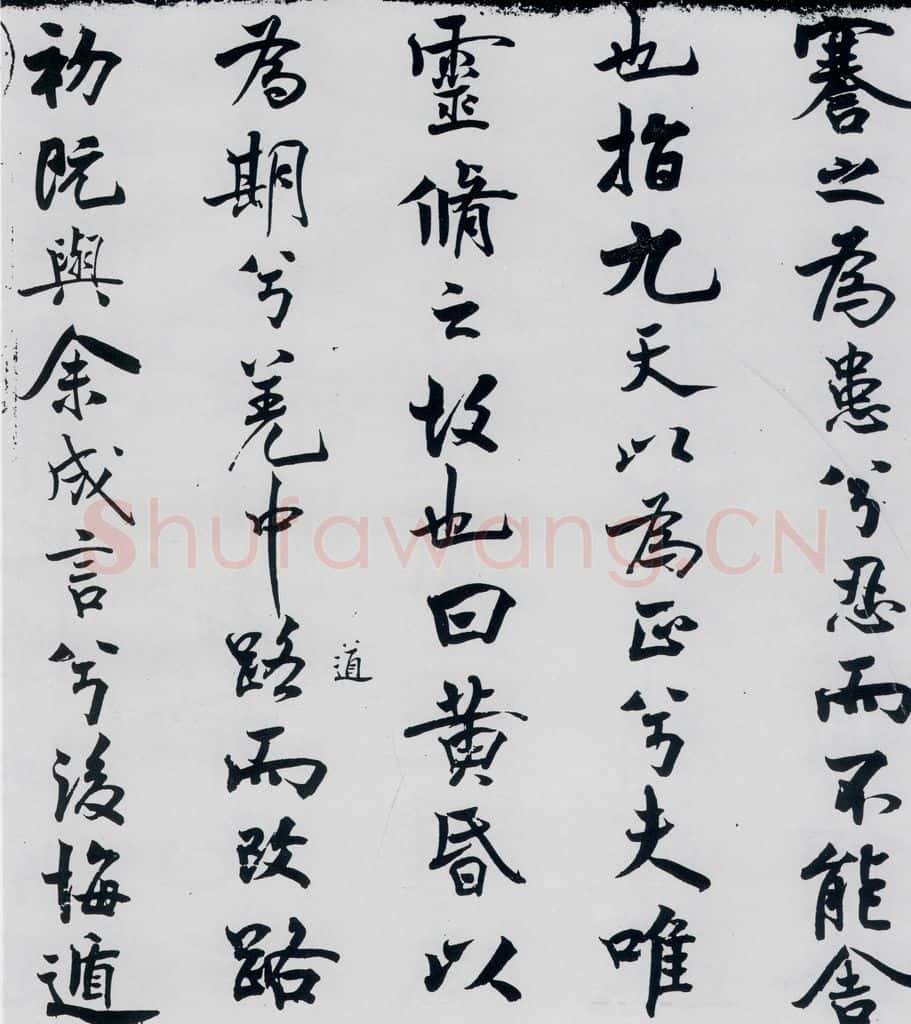 謇之為患兮忍而不能舍
也指九天以為正兮夫唯
靈脩之故也曰黄昏以
為期兮羌中路而改路
道
初既與余成言兮後悔遁
Shufawang.CN